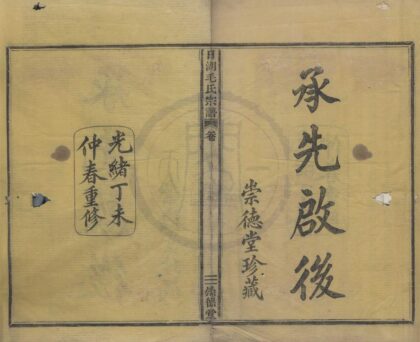 承先啟後
崇德堂珍藏
毛氏宗譜
卷
光緒丁未
仲春重修